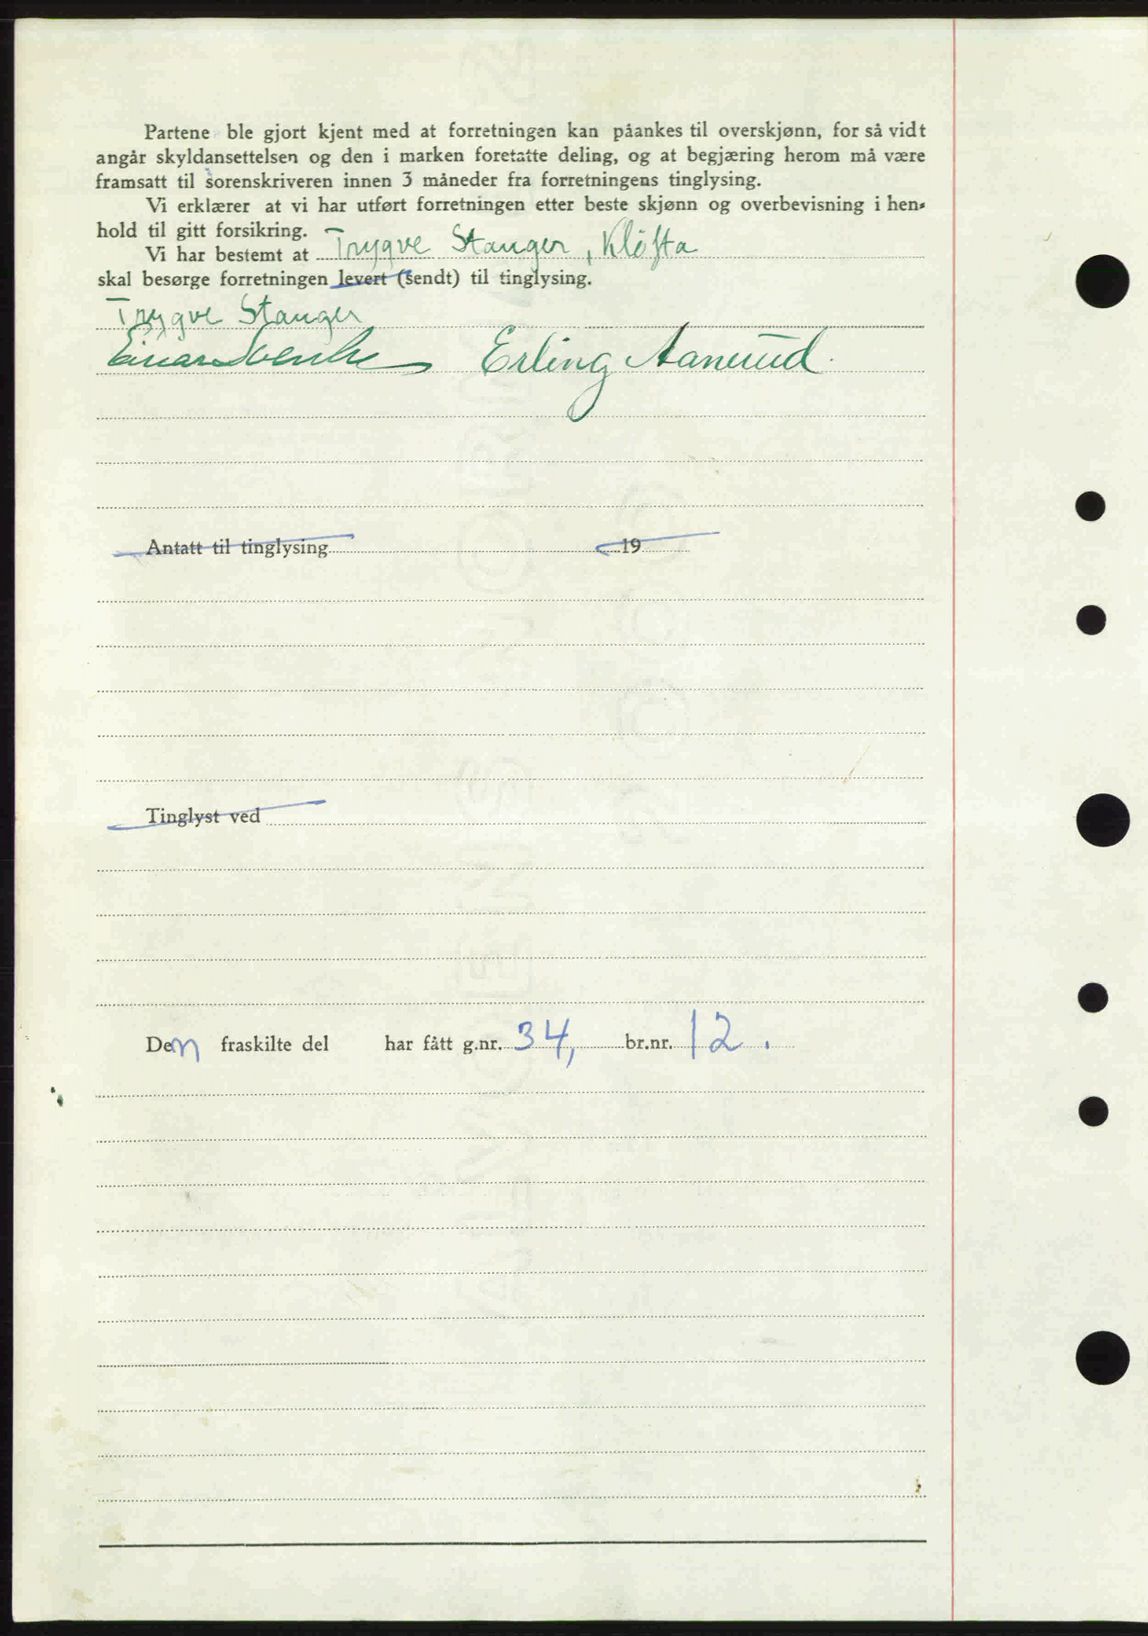 Partene ble gjort kjent med at forretningen kan påankes til overskjønn, for så vidt
angår skyldansettelsen og den i marken foretatte deling, og at begjæring herom må være
framsatt til sorenskriveren innen 3 måneder fra forretningens tinglysing.
Vi erklærer at vi har utført forretningen etter beste skjønn og overbevisning i hen-
hold til gitt forsikring.
Vi har bestemt at Trygve Stanger, Kløfta
skal besørge forretningen levert (sendt) til tinglysing.
Trygve Stanger
Einar Erling Aanerud.
Antatt til tinglysing 19
Tinglyst ved
Den fraskilte del har fått g.nr. 34, br.nr. 12.